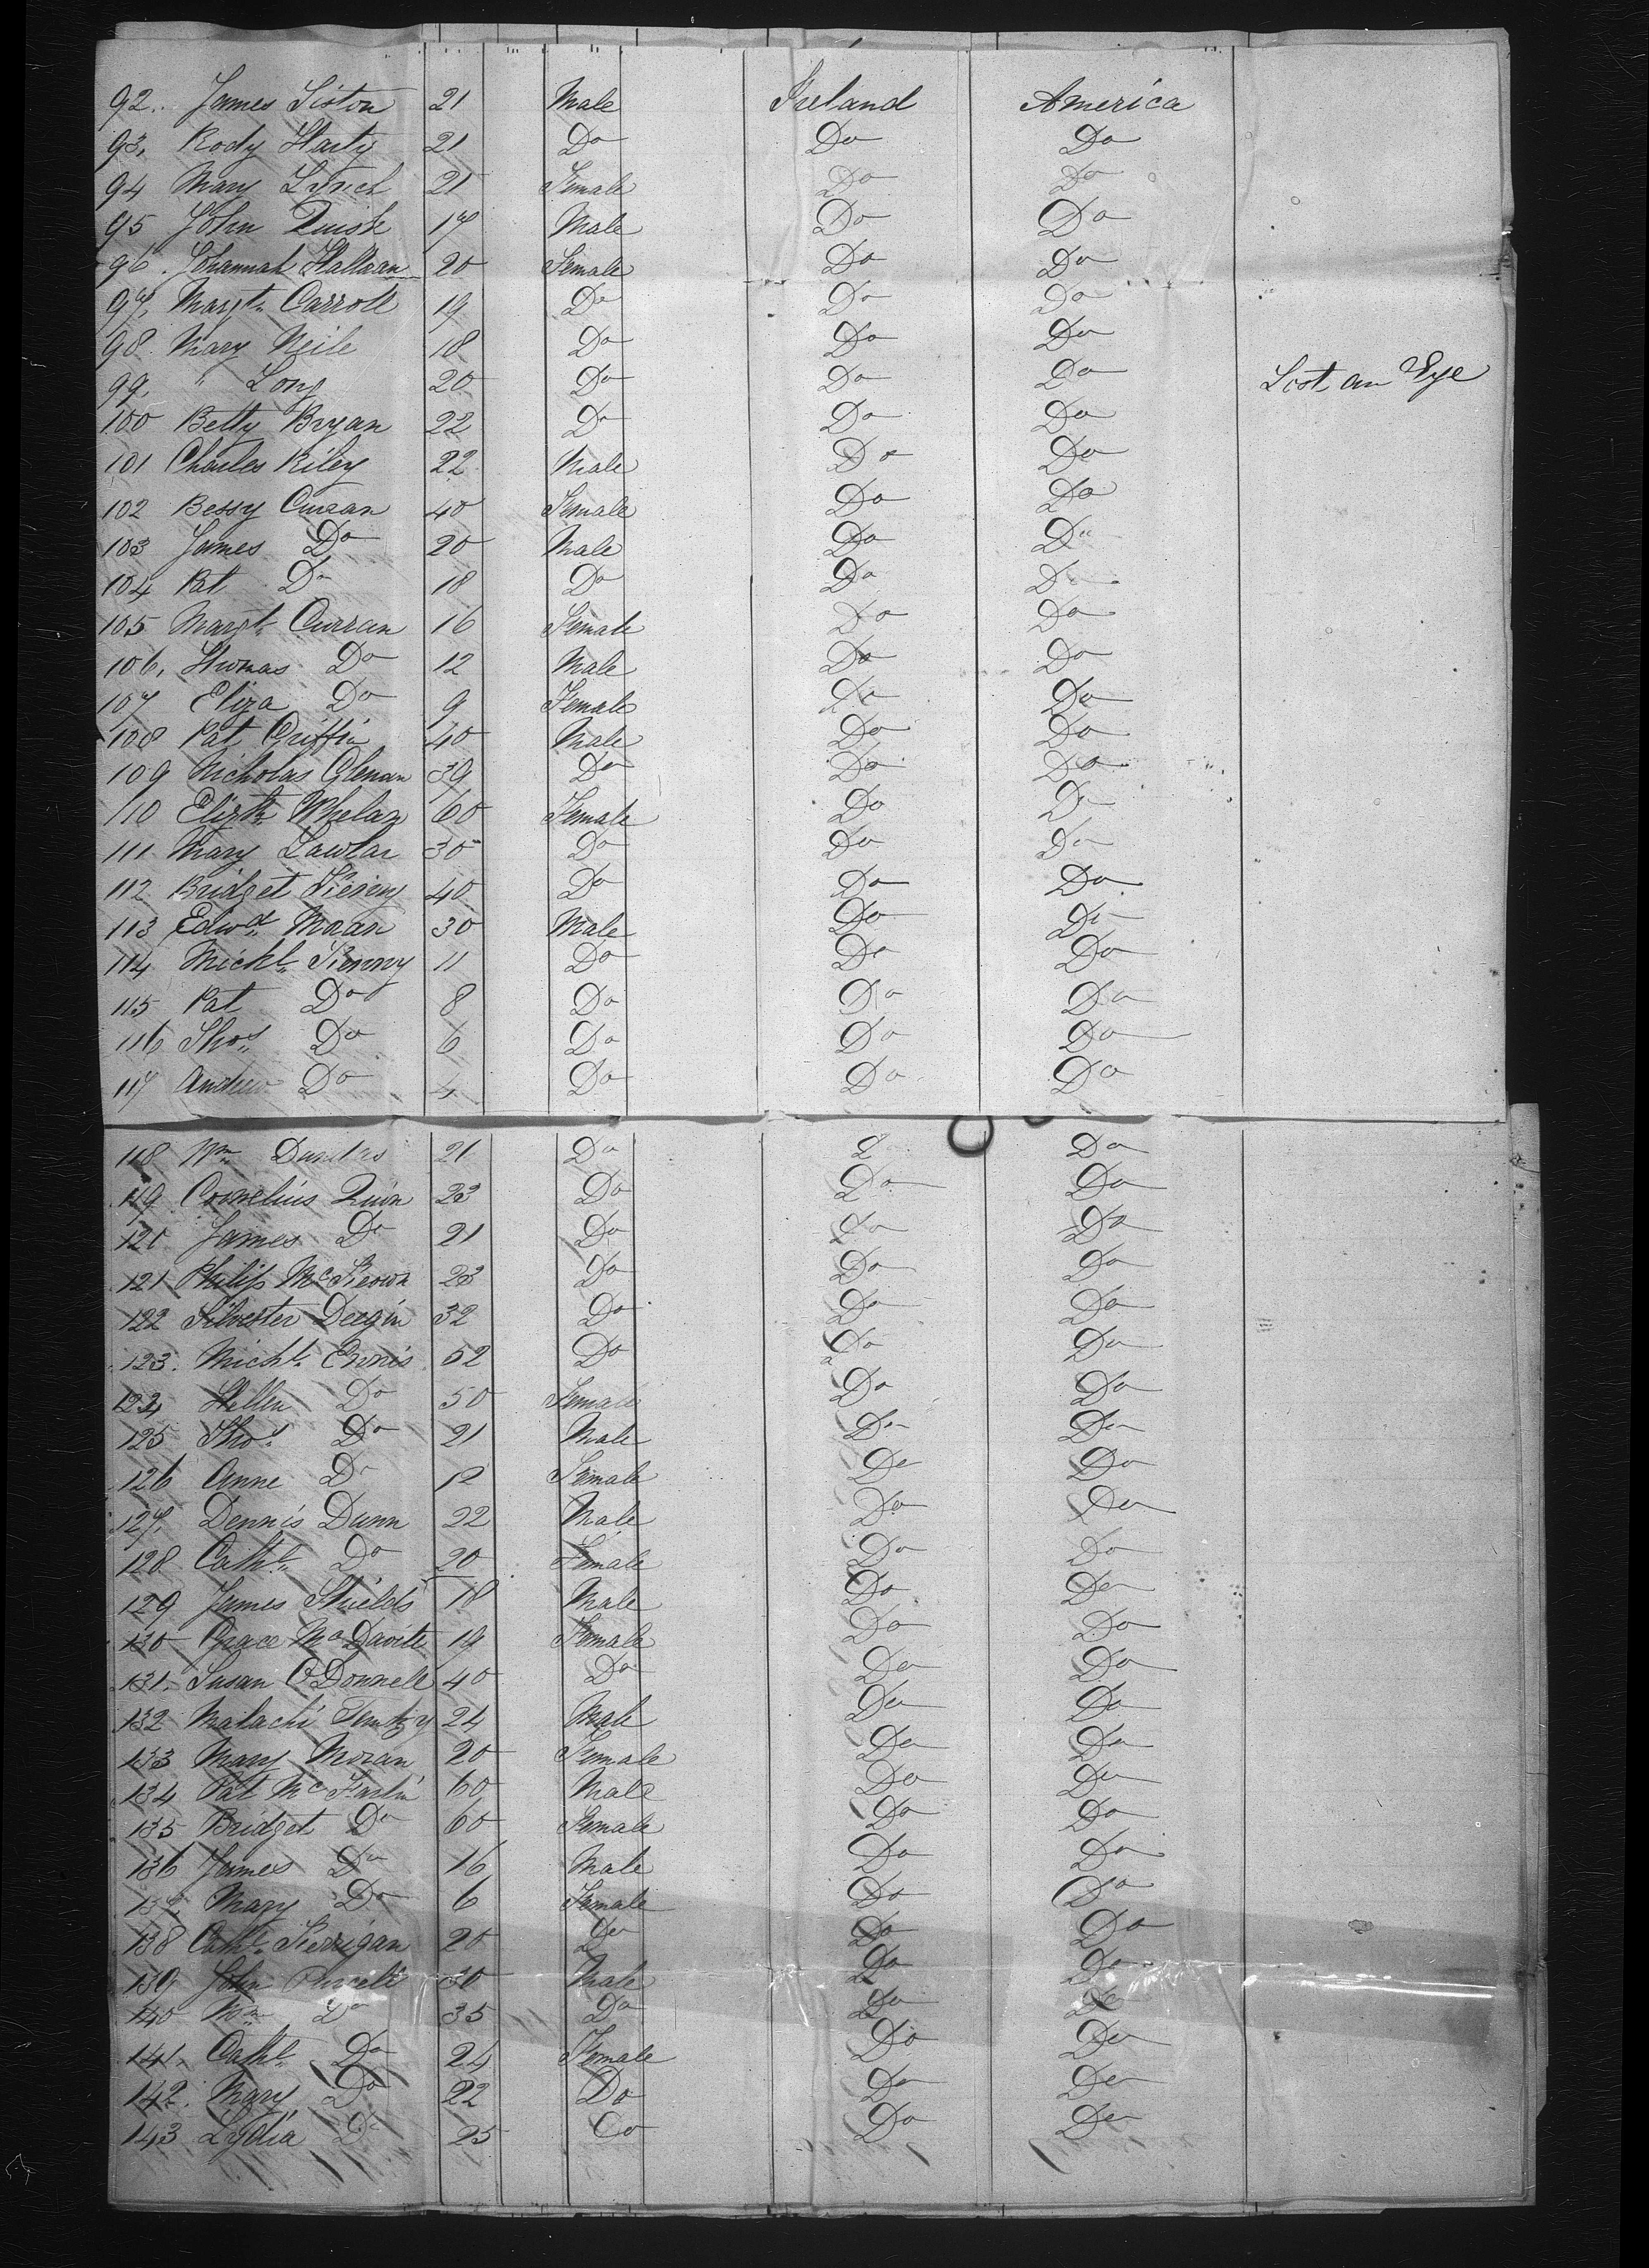 92.. James Siston 21 Male Ireland America
93. Rody Harty 21 Do Do Do
94 Mary Lynch 21 Female Do Do
95 John Quish 17 Male Do Do
96. Johannah Hallaran 20 Female Do Do
97. Margt. Carroll 19 Do Do Do
98. Mary Neile 18 Do Do Do
99. " Long 20 Do Do Do Lost an Eye
100 Betty Bryan 22 Do Do Do
101 Charles Riley 22 Male Do Do
102 Bessy Curran 40 Female Do Do
103 James Do 20 Male Do Do
104 Pat Do 18 Do Do Do
105 Margt. Curran 16 Female Do Do
106. Thomas Do 12 Male Do Do
107 Eliza Do 9 Female Do Do
108 Pat Griffin 40 Male Do Do
109 Nicholas Glenan 39 Do Do Do
110 Elizth. Whelan 60 Female Do Do
111 Mary Lawlar 30 Do Do Do
112 Bridget 40 Do Do Do
113 Edwd. Moran 30 Male Do Do
114 Michl. Kenny 11 Do Do Do
115 Pat Do 8 Do Do Do
116 Thos. Do 6 Do Do Do
117 Andrew Do 4 Do Do Do
118 Wm. Dundas 21 Do Do
119 Cornelius Quin 23 Do Do Do
120 James Do 21 Do Do Do
121 Philip McKeown 23 Do Do Do
122 Silvester Deegin 32 Do Do Do
123. Michl. Ennis 52 Do Do Do
124 Hellen Do 50 Female Do Do
125 Thos. Do 21 Male Do Do
126 Anne Do 12 Female Do Do
127. Dennis Dunn 22 Male Do Do
128 Cathe. Do 20 Female Do Do
129 James Shields 18 Male Do Do
130 Grace McDavitt 19 Female Do Do
131. Susan O'Donnell 40 Do Do Do
132 Malachi 24 Male Do Do
133 Mary Moran 20 Female Do Do
134 Pat Mc 60 Male Do Do
135 Bridget Do 60 Female Do Do
136 James Do 16 Male Do Do
137 Mary Do 6 Female Do Do
138 Cathe. Kerrigan 20 Do Do Do
139 John Purcell 30 Male Do Do
140 Wm. Do 35 Do Do Do
141. Cathe. Do 24 Female Do Do
142. Mary Do 22 Do Do Do
143 Lydia Do 25 Do Do Do